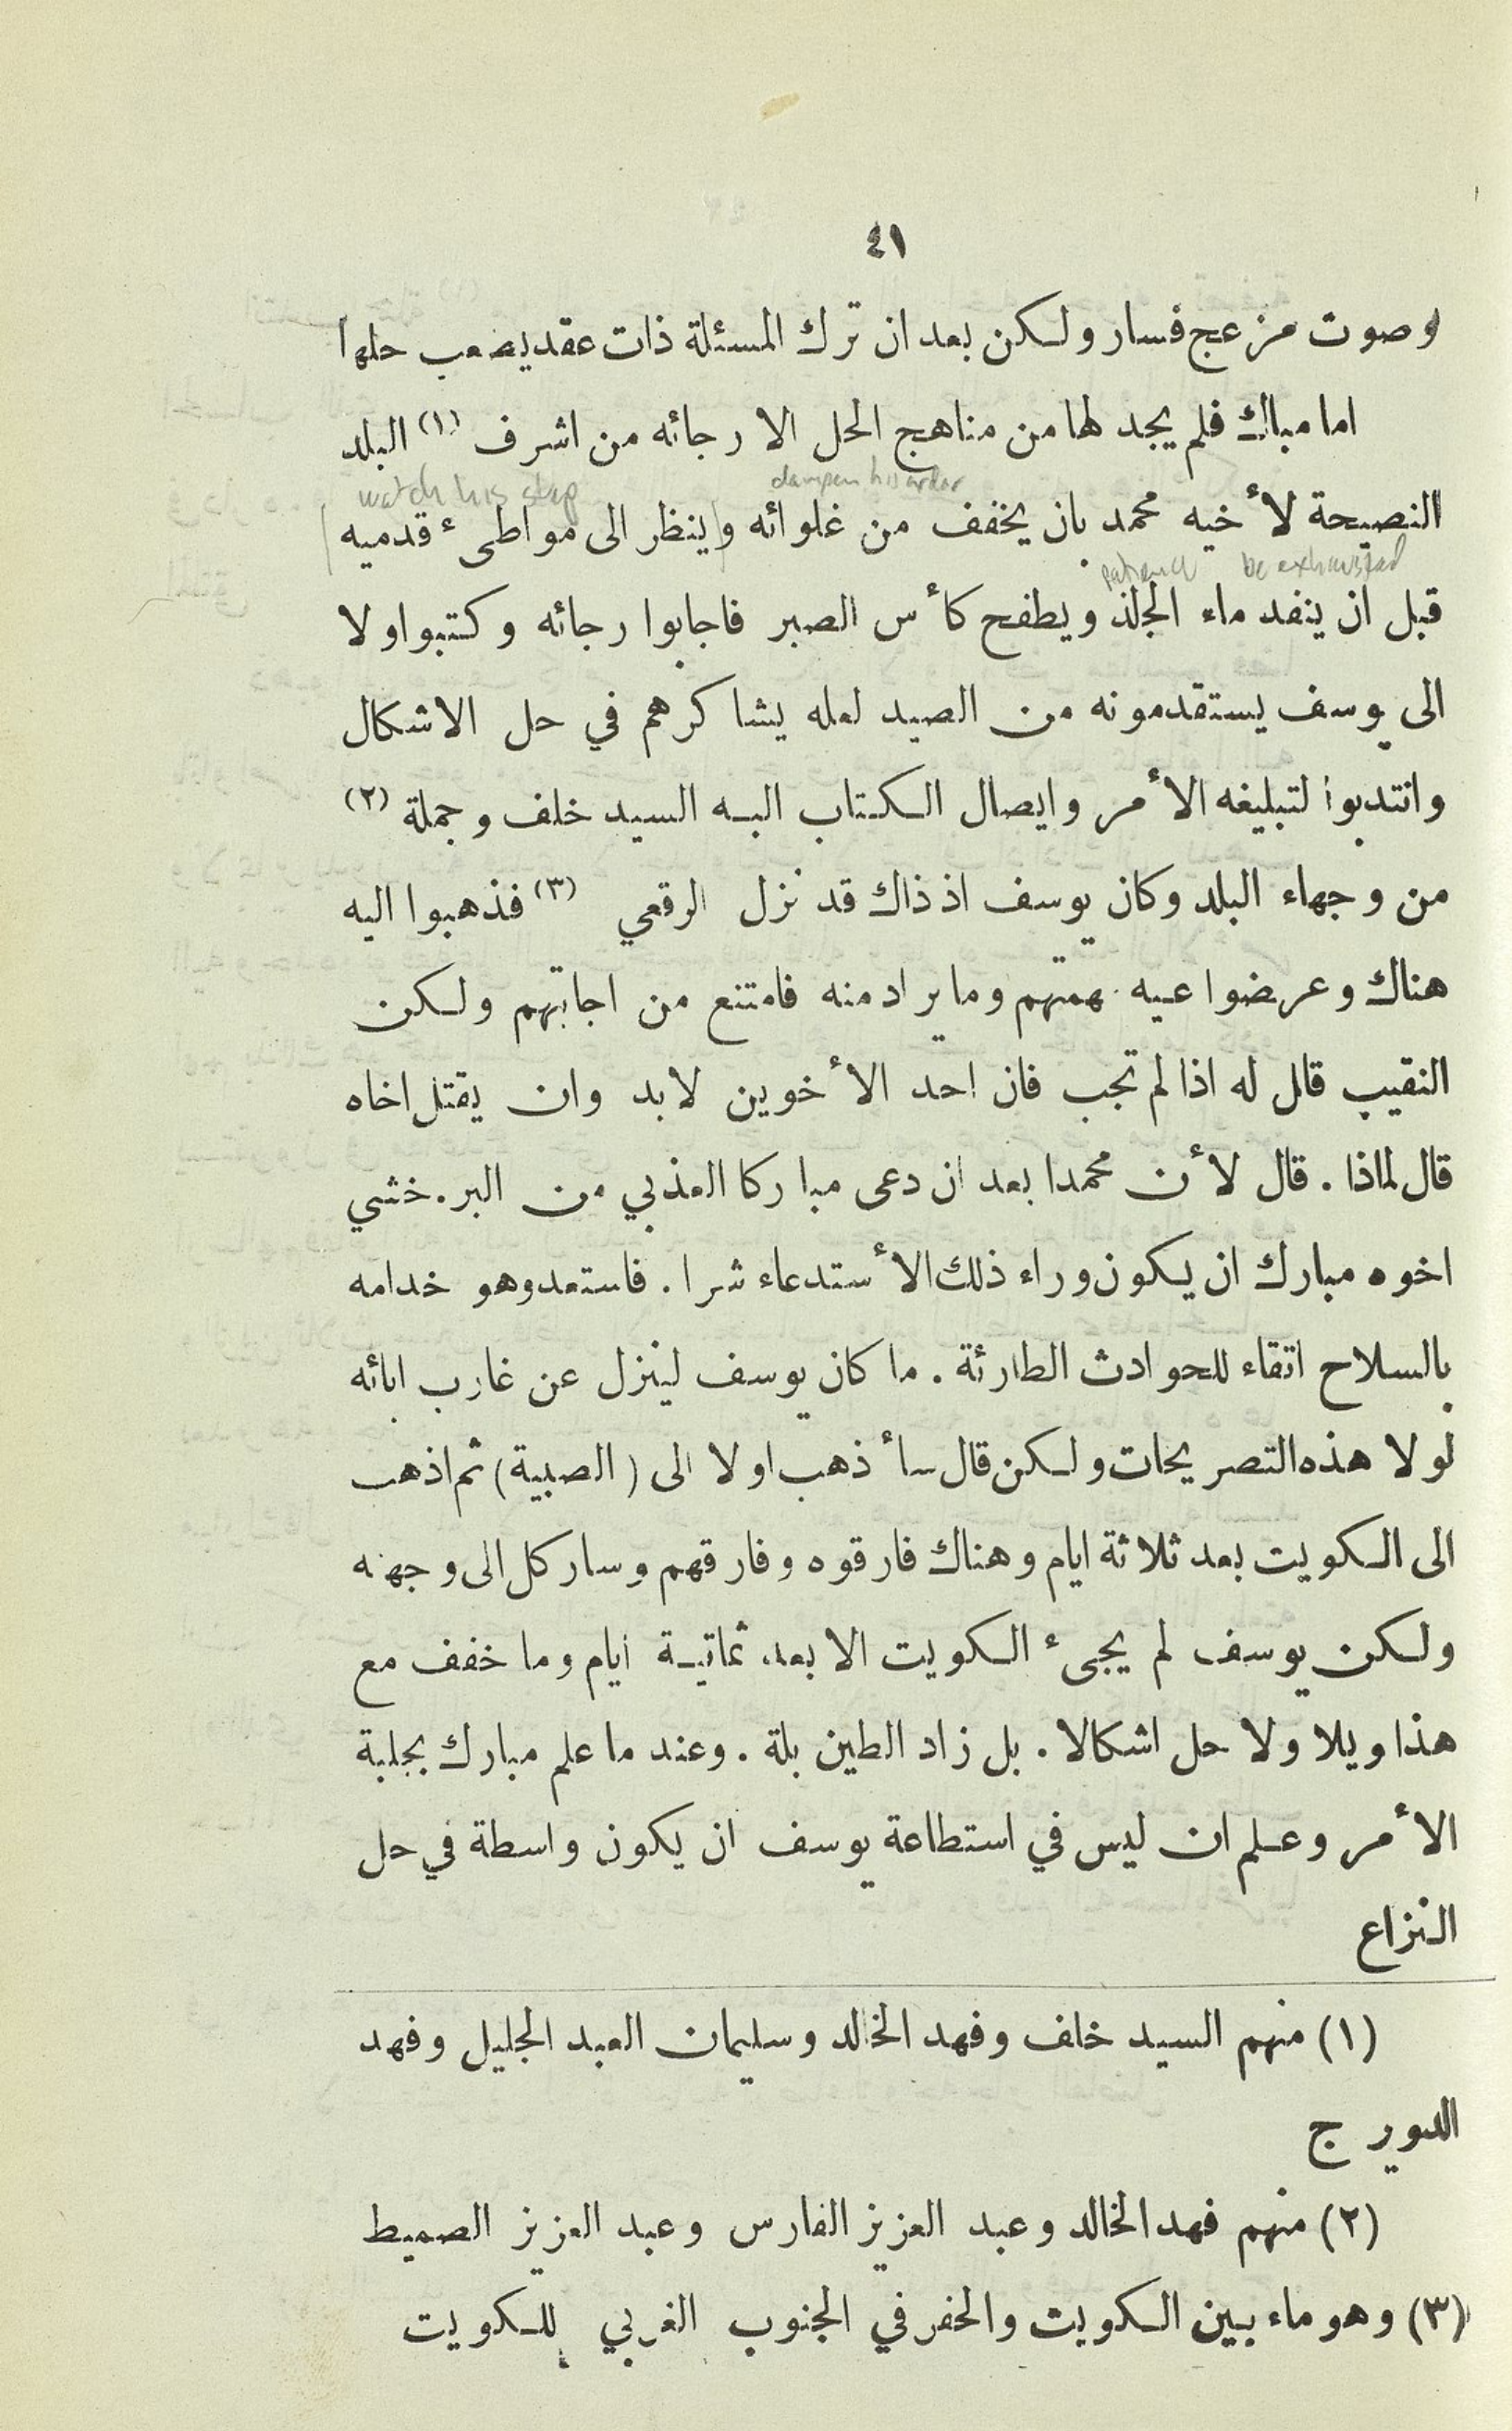 ٤١
وصوت مزعج فسار ولكن بعد ان ترك المسئلة ذات عقد يصعب حلها
اما مبارك فلم يجد لها من مناهج الحل الا رجائه من اشرف (١) البلد
watch his step dampen his ardor
النصيحة لأخيه محمد بان يخفف من غلوائه وينظر الى مواطىء قدميه
patience be exhausted
قبل ان ينفد ماء الجلد ويطفح كأس الصبر فاجابوا رجائه وكتبوا اولا
الى يوسف يستقدمونه من الصيد لعله يشاكرهم في حل الاشكال
وانتدبوا لتبليغه الأمر وايصال الكتاب اليه السيد خلف وجملة (٢)
من وجهاء البلد وكان يوسف اذ ذاك قد نزل الرقعي (٣) فذهبوا اليه
هناك وعرضوا عيه مهمتهم وما يراد منه فامتنع من اجابتهم ولكن
النقيب قال له اذا لم تجب فان احد الأخوين لابد وان يقتل اخاه
قال لماذا . قال لأن محمدا بعد ان دعى مباركا العذبي من البر . خشي
اخوه مبارك ان يكون وراء ذلك الأستدعاء شرا . فاستعد وهو خدامه
بالسلاح اتقاء للحوادث الطارئة . ما كان يوسف لينزل عن غارب ابائه
لولا هذه التصريحات ولكن قال سأذهب اولا الى (الصبية) ثم اذهب
الى الكويت بعد ثلاثة ايام وهناك فارقوه وفارقهم وسار كل الى وجهته
ولكن يوسف لم يجىء الكويت الا بعد ثمانية ايام وما خفف مع
هذا ويلا ولا حل اشكالا . بل زاد الطين بلة . وعند ما علم مبارك بجلية
الأمر وعلم ان ليس في استطاعة يوسف ان يكون واسطة في حل
النزاع
(١) منهم السيد خلف وفهد الخالد وسليمان العبد الجليل وفهد
الدويرج
(٢) منهم فهد الخالد وعبد العزيز الفارس وعبد العزيز الصميط
(٣) وهو ماء بين الكويت والحفر في الجنوب الغربي للكويت